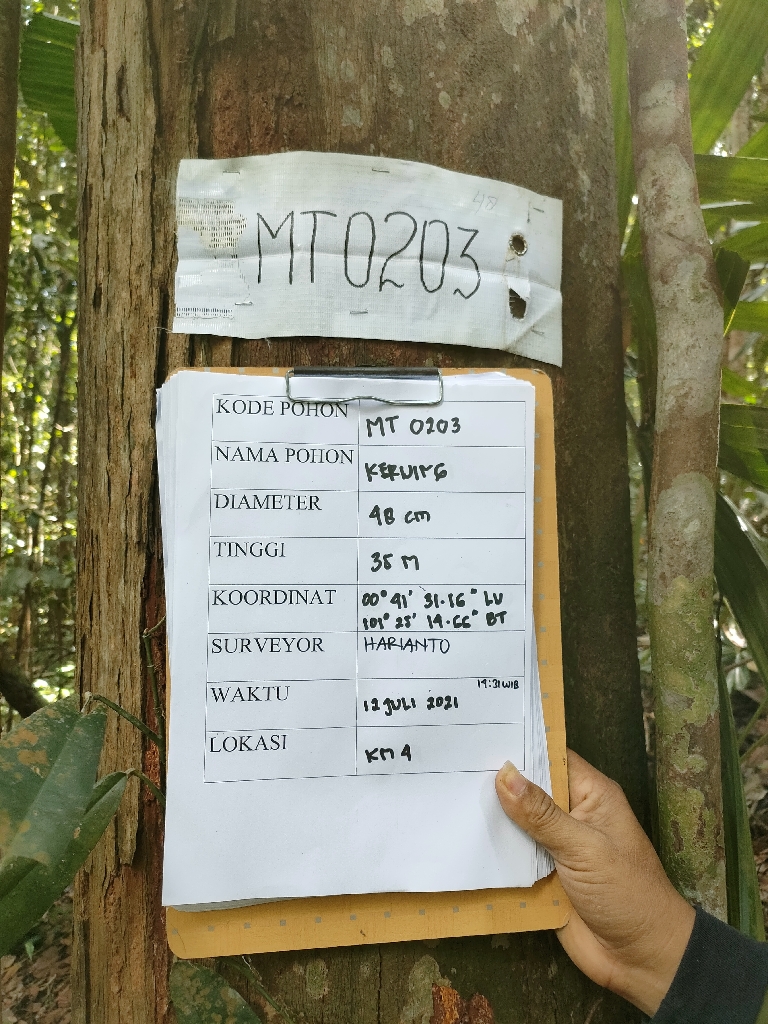 48
MT0203
KODE POHON MT 0203
NAMA POHON KERUING
DIAMETER 48 cm
TINGGI 35 M
KOORDINAT 00° 41' 31.16" LU
101° 25' 14.66" BT
SURVEYOR HARIANTO
WAKTU 12 JULI 2021 14:31 WIB
LOKASI KM 4